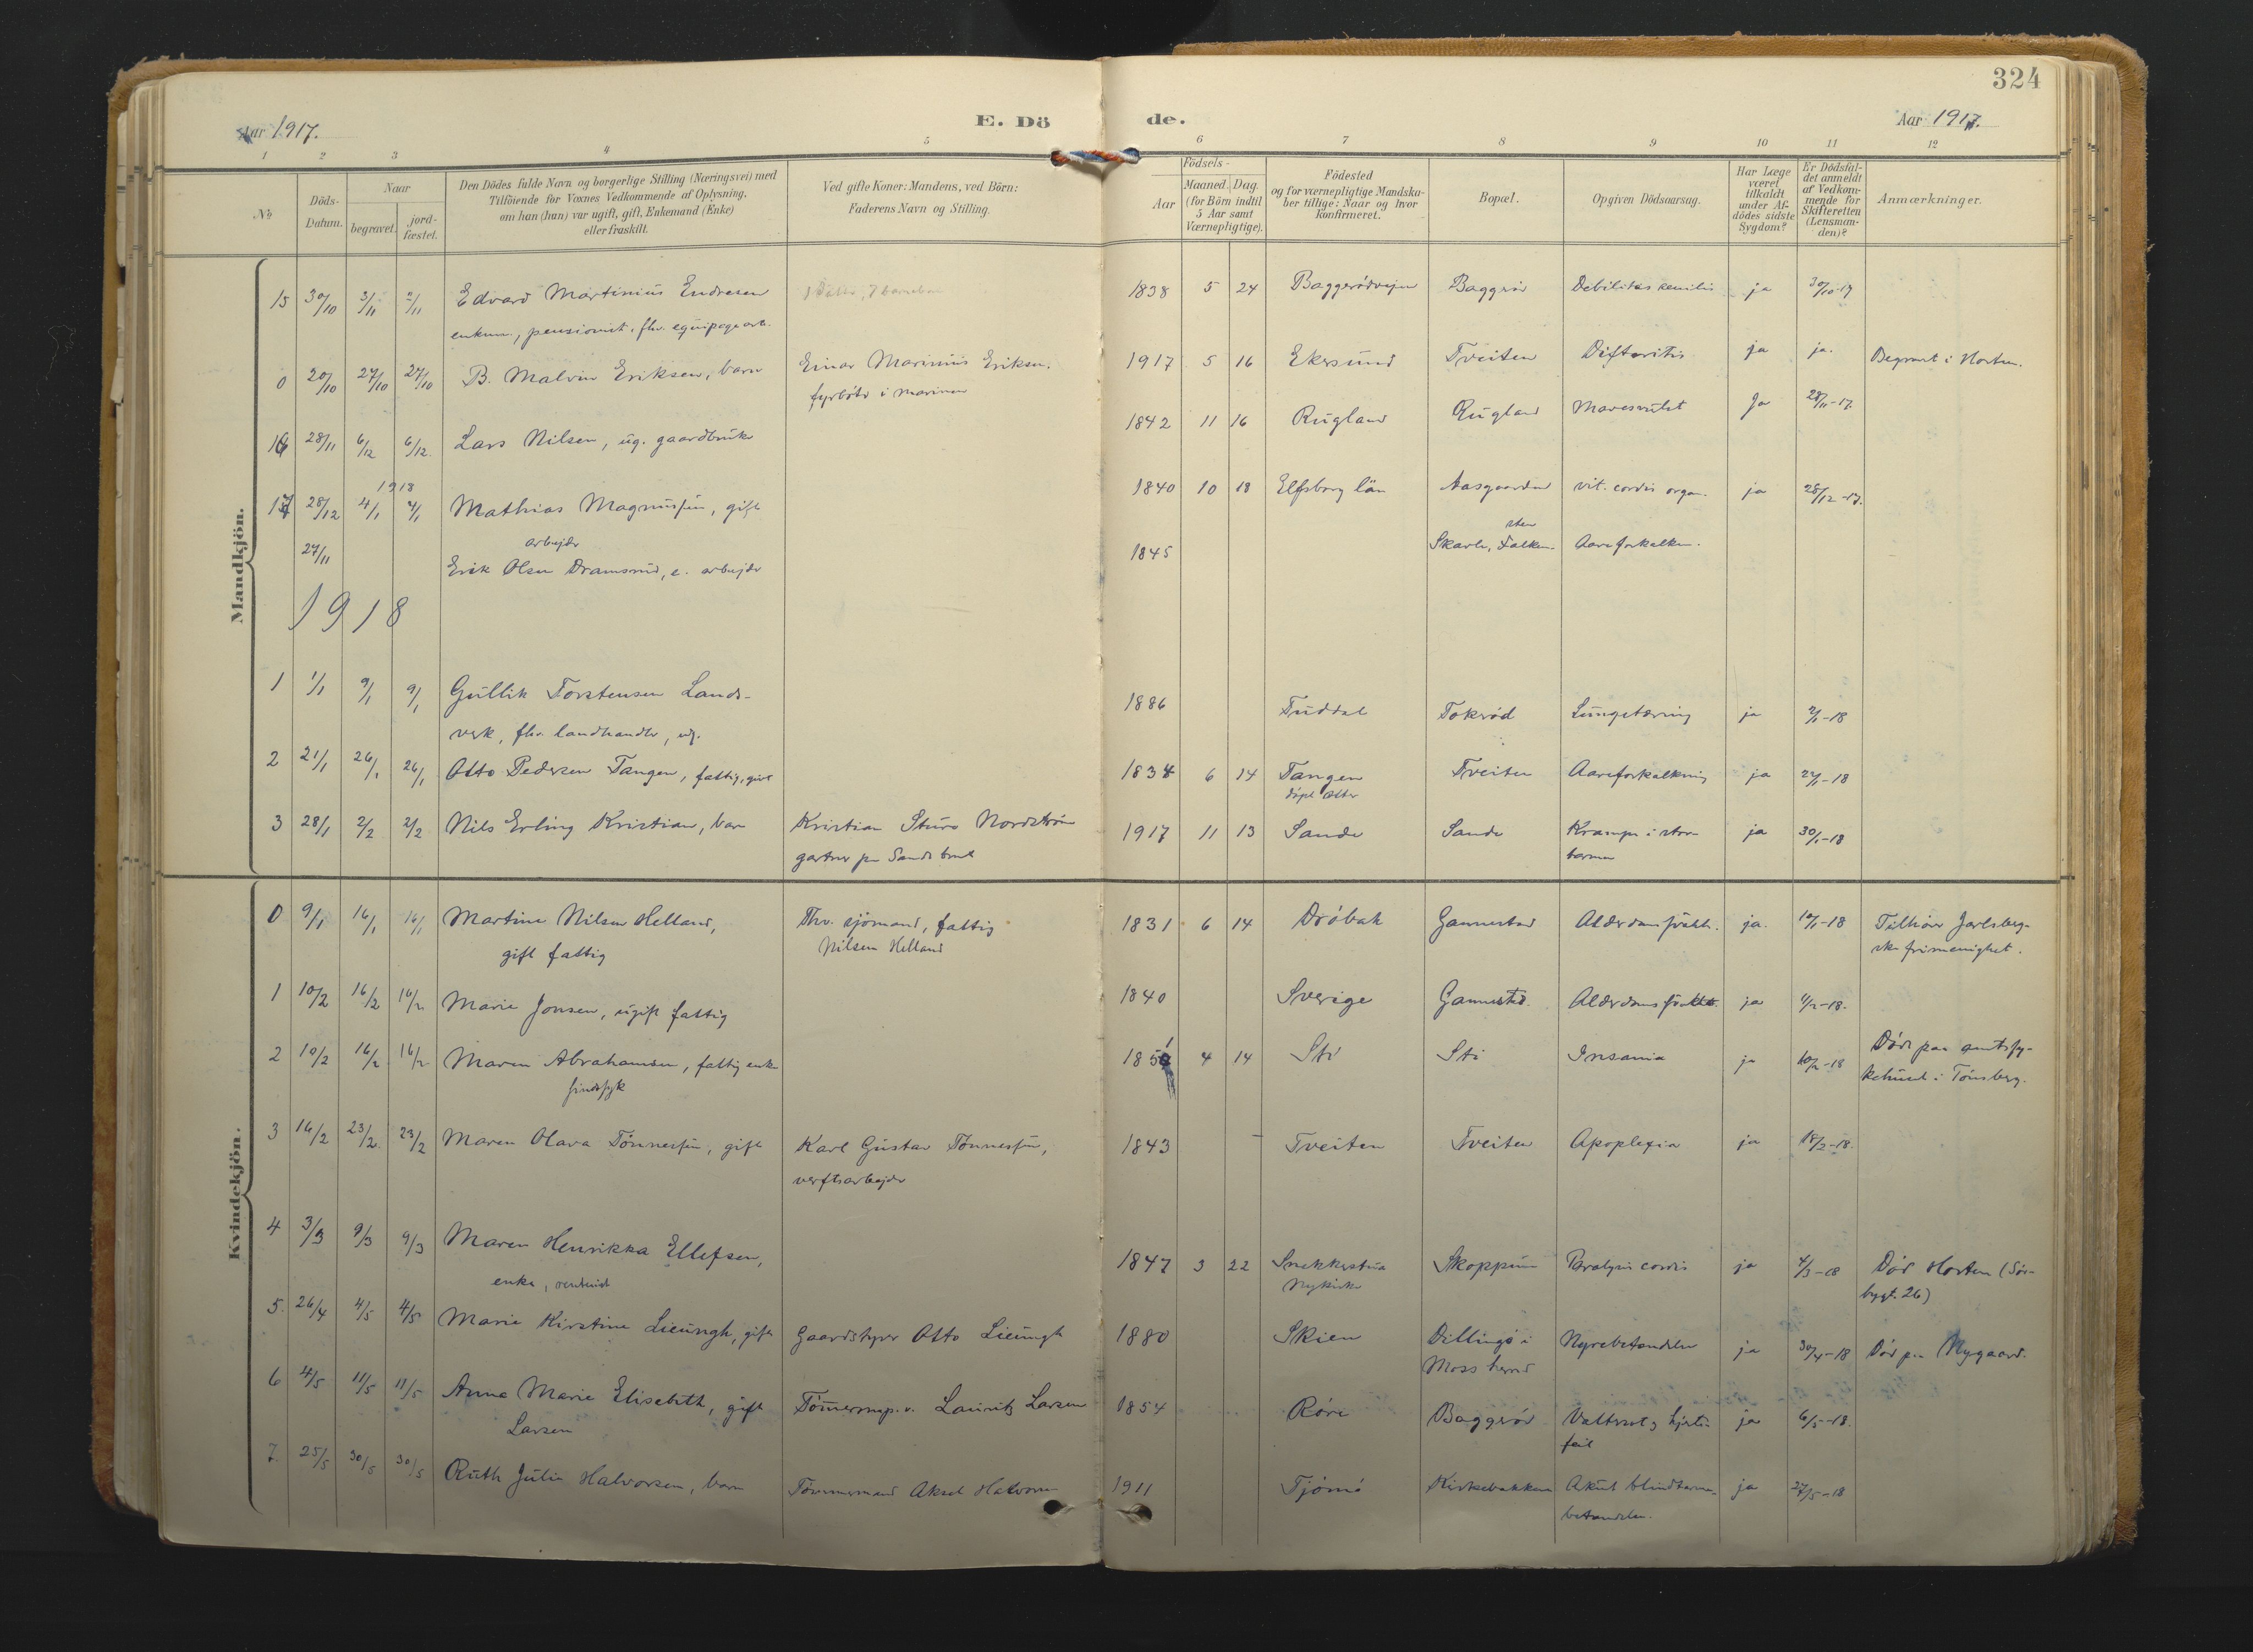 324
Aar 1917.
E. Dö de.
Aar 1917.
1 2 3 4 5 6 7 8 9 10 11 12
№
Döds-Datum.
Naar
begravet.
jord-fæstet.
Den Dödes fulde Navn og borgerlige Stilling (Næringsvei) med
Tilföiende for Voxnes Vedkommende af Oplysning,
om han (hun) var ugift, gift, Enkemand (Enke)
eller fraskilt.
Ved gifte Koner: Mandens, ved Börn:
Faderens Navn og Stilling.
Födsels-
Aar
Maaned. Dag.
(for Börn indtil
5 Aar samt
Værnepligtige).
Födested
og for værnepligtige Mandska-
ber tillige: Naar og hvor
konfirmeret.
Bopæl.
Opgiven Dödsaarsag.
Har Læge
været
tilkaldt
under Af-
dödes sidste
Sygdom?
Er Dödsfal-
det anmeldt
af Vedkom-
mende for
Skifteretten
(Lensman-
den)?
Anmærkninger.
Mandkjön.
15 30/10 3/11 3/11 Edvard Martinius Endresen 1838 5 24 Baggerödveien Baggeröd Debilitas senilis ja 30/10-17
enkem., pensionist, fhv. equipagearb.
0 20/10 27/10 27/10 B. Malvin Eriksen, barn Einar Marinius Eriksen, 1917 5 16 Ekersund Tveiten Difteritis ja ja. Begravet i Horten.
fyrböter i marinen
16 28/11 6/12 6/12 Lars Nilsen, ug. gaardbruker 1842 11 16 Rugland Rugland Mavesvulst Ja 28/11-17.
1918
17 28/12 4/1 4/1 Mathias Magnussen, gift 1840 10 18 Elfsborg län Aasgaarden vit. cordis organ. ja 28/12-17.
arbejder
27/11 Erik Olsen Dramsrud, e. arbejder 1845 Skarle, Falken- sten Aareforkalkn.
1918
1 1/1 9/1 9/1 Gullik Torstensen Lands- 1886 Tuddal Tokeröd Lungetæring ja 2/1-18
verk, fhv. landhandler, ug.
2 21/1 26/1 26/1 Otto Pedersen Tangen, fattig, gift 1834 6 14 Tangen Tveiten Aareforkalkning ja 22/1-18
döpt Otter
3 28/1 2/2 2/2 Nils Erling Kristian, barn Kristian Sture Nordström 1917 11 13 Sande Sande Krampe i stru- ja 30/1-18
gartner paa Sande bruk
Kvindekjön.
0 9/1 16/1 16/1 Martine Nilsen Helland, Fhv. sjömand, fattig 1831 6 14 Dröbak Gannestad Alderdomssvækk. ja. 10/1-18 Tilhörer Jarlsberg-
gift fattig Nilsen Helland ske frimenighet.
1 10/2 16/2 16/2 Marie Jonsen, ugift fattig 1840 Sverige Gannestad. Alderdomssvækk. ja 11/2-18.
2 10/2 16/2 16/2 Maren Abrahamsen, fattig enke 1851 4 14 Sti Sti Insania ja 10/2-18 Död paa amtssy-
sindssyk kehuset i Tönsberg.
3 16/2 23/2. 23/2 Maren Olava Tönnessen, gift Karl Gustav Tönnessen, 1843 Tveiten Tveiten Apoplexia ja 18/2-18.
verftsarbejder
4 3/3 9/3 9/3 Maren Henrikka Ellefsen, 1847 3 22 Snekkestua Skoppum Paralysis cordis ja 4/3-18 Död Horten (Sör-
enke, rentenist Nykirke bygt. 26)
5. 26/4 4/5 4/5 Marie Kirstine Lieungh, gift Gaardstyrer Otto Lieungh 1880 Skien Dillingö i Nyrebetændelse ja 30/4-18 Död paa Nygaard.
Moss herred
6 4/5 11/5 11/5 Anna Marie Elisabeth, gift Tömermp. v. Lauritz Larsen 1854 Röre Baggeröd Vattersot, hjerte- ja 6/5-18.
Larsen feil
7. 25/5 30/5 30/5 Ruth Julie Halvorsen, barn Tömmermand Aksel Halvorsen 1911 Tjömö Kirkebakken Akut blindtarms- ja 27/5-18
betændelse.